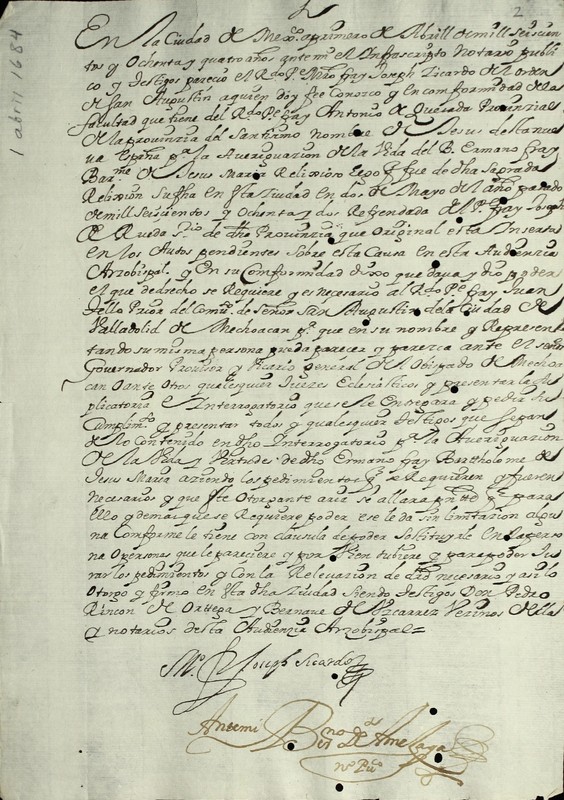 2
1 abril 1684
En la Ciudad de Mexco a primero de Abrill de mill seiscien
tos y Ochenta y quatro años ante mi el Infascripto Notario publi
co y Destigos parecio el Rdo Pe Mro fray Joseph Sicardo del orden
de san Augustin a quien doy fee Conosco y en comformidad de la
facultad que tiene del Rdo Pe fray Antonio de Quesada Prouincial
de la prouincia del Santissimo nombre de Jesus desta nue
ua españa pa la Aueriguacion de la Vida del B. Ermano fray
Barme de Jesus Maria Relixioso lego qe fue de dha Sagrada
Relixion su fha en esta Ciudad en dos de Mayo del año pasado
de mill seiscientos y ochenta y dos Refrendada del Pe fray Joseph
de Rueda Srio de dha Prouincia que original esta Inserta
en los Autos pendientes sobre esta Causa en esta Audiencia
Arzobispal. y en su Comformidad dixo que daua y dio poder
el que de derecho se Requiere y es necesario al Rdo Pe fray Juan
Prior del Comto de Señor San Augustin de la Ciudad de
Valladolid de Mechoacan pa que en su nombre y Represen
tando su misma persona pueda parecer y paresca ante el señor
Gouernador Prouisor y Vicario General del Obispado de Mechoa
can O ante otros qualesquier Juezes Eclesiasticos y presentar la su
plicatoria e Interrogatorio que se le Entregara y pedir su
Cumplimto y presentar todos y qualesquier Destigos que sepan
de lo Contenido en dho Interrogatorio pa la Aueriguacion
de la Vida y Virtudes de dho Ermano fray Bartholome de
Jesus Maria aziendo los pedimientos qe se Requieren y fueren
necesarios y que este Otorgante aria se allara pnte qe para
ello y demas que se Requiere poder ese le da sin limitacion algu
na Comforme le tiene con clausula de poder Sostituyrle En la perso
na O personas que le pareciere y por bien tubiere y para poder Ju
rar los pedimientos y Con la Releuacion de dro necesario y asi lo
Otorgo y firmo en esta dha Ciudad siendo destigos Don Pedro
Rincon de Ortega y Bernaue de Vizcarrez Vezinos della
y notarios desta Audiencia Arzobispal=
Mo fr Joseph Sicardo
Ante mi
Bernno de Amesaga
No Puco